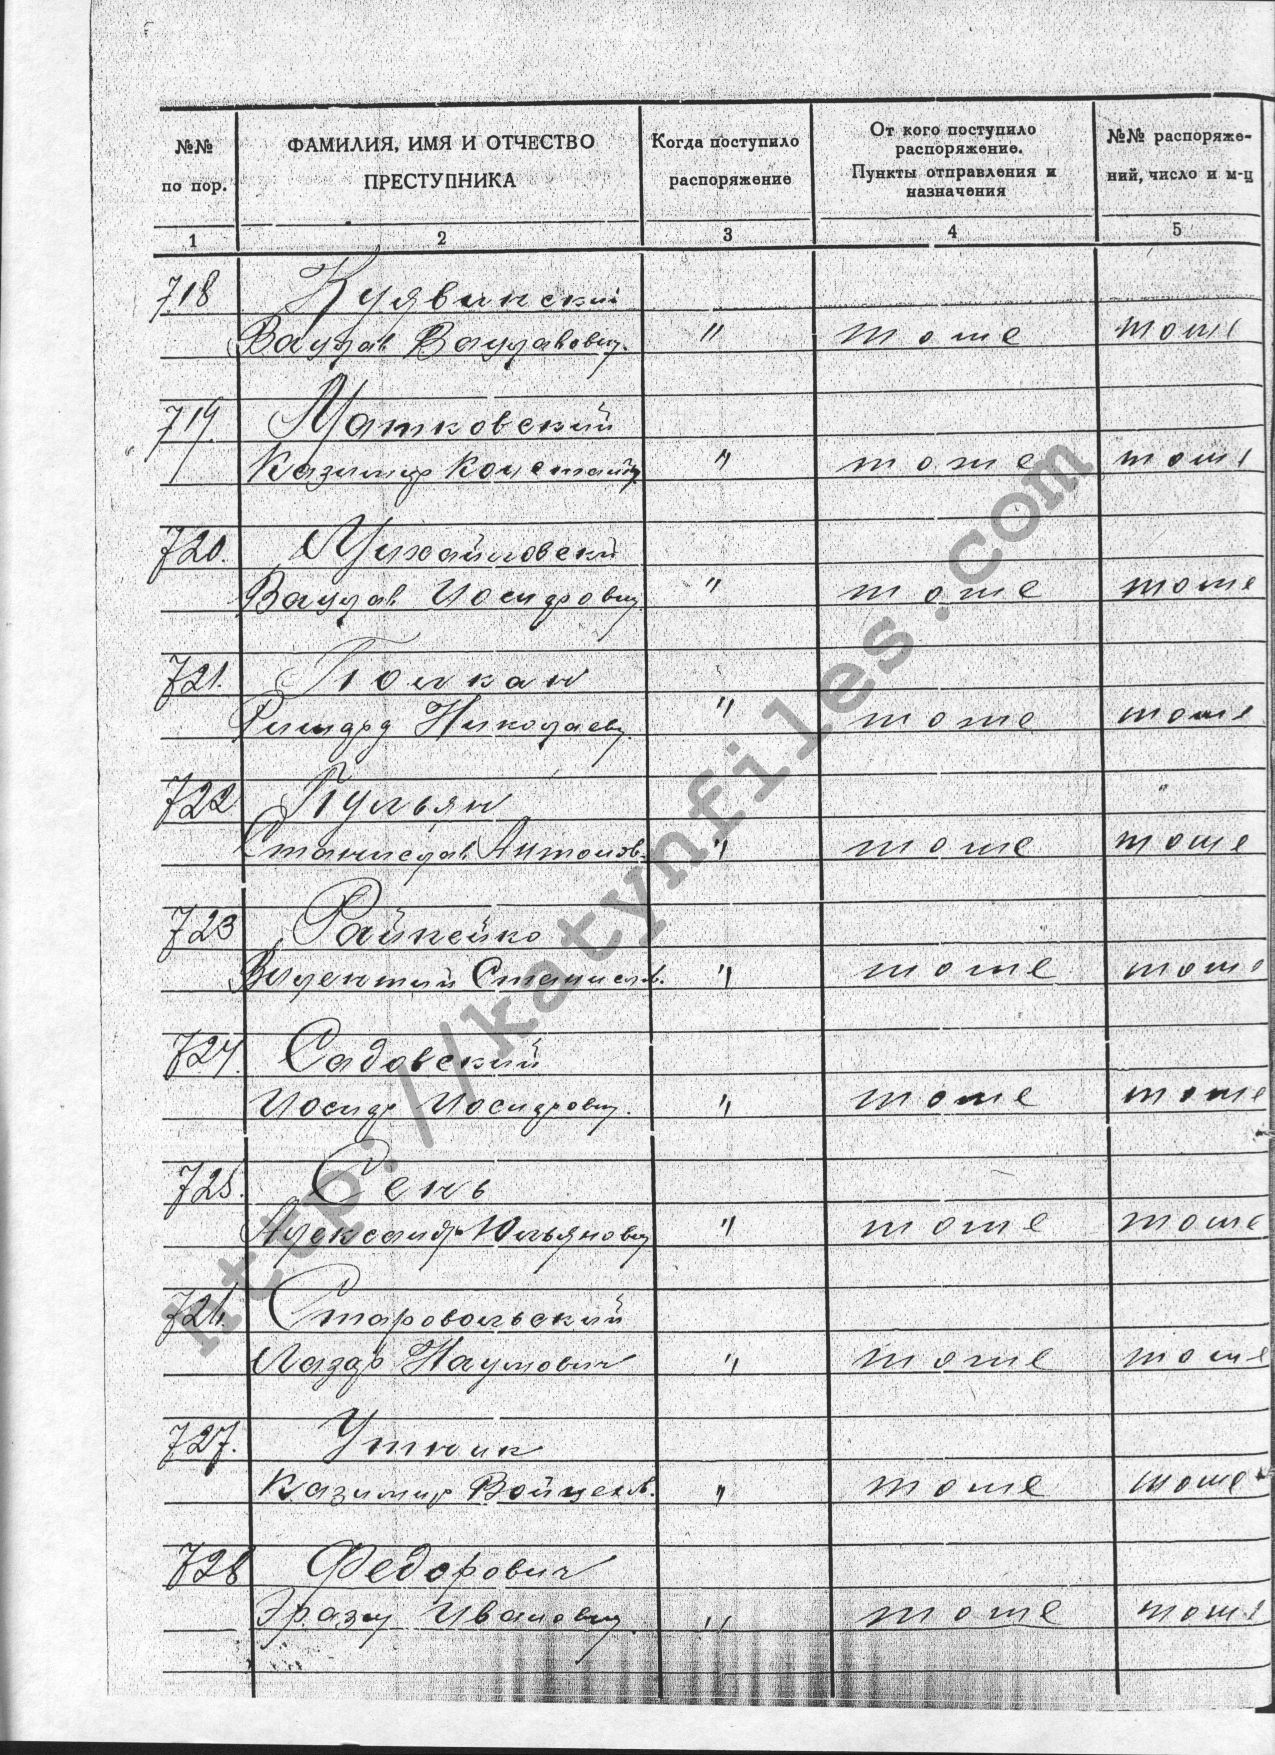 №№ по пор.
ФАМИЛИЯ, ИМЯ И ОТЧЕСТВО ПРЕСТУПНИКА
Когда поступило распоряжение
От кого поступило распоряжение. Пункты отправления и назначения
№№ распоряжений, число и м-ц
1 2 3 4 5
718 Куявинский
Вацлав Вацлавович. " тоже тоже
719. Матковский
Казимир Констант " тоже тоже
720. Михайловский
Вацлав Иосифович " тоже тоже
721. Полкан
Ришард Николаев. " тоже тоже
722 Пульян "
Станислав Антонов. " тоже тоже
723 Райпейко
Викентий Станислав. " тоже тоже
724. Садовский
Иосиф Иосифович. " тоже тоже
725. Сень
Александр Юльянович " тоже тоже
726. Старовольский
Лазарь Наумович " тоже тоже
727. Утник
Казимир Войцехов. " тоже тоже
728 Федорович
Эразм Иванович " тоже тоже
http://katynfiles.com